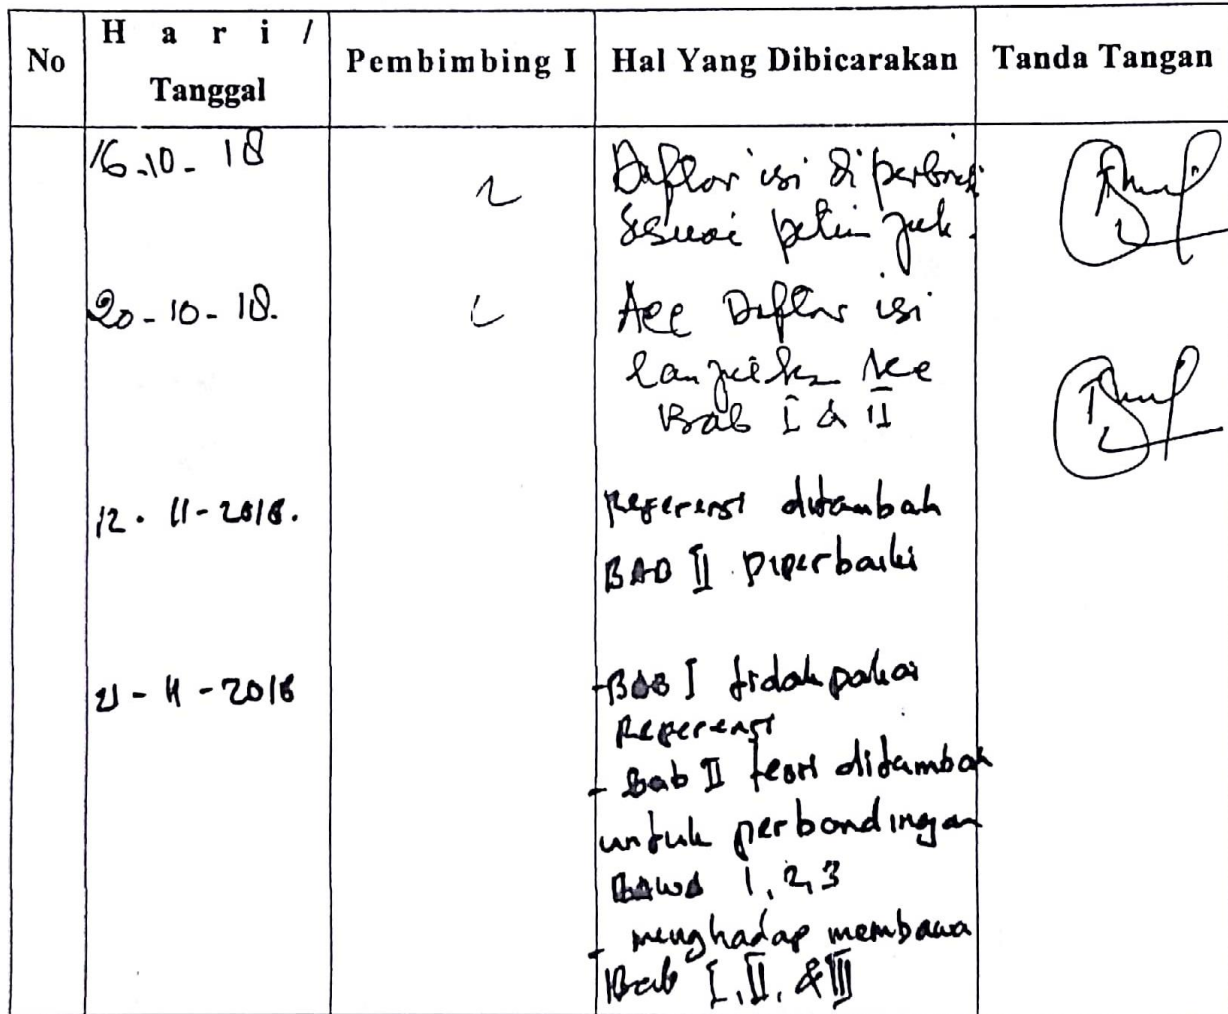 No
H a r i /
Tanggal
Pembimbing I
Hal Yang Dibicarakan
Tanda Tangan
16-10-18
Daftar isi diperbaiki
sesuai petunjuk.
20-10-18.
Acc Daftar isi
lanjutkan ke
Bab I & II
12-11-2018.
Referensi ditambah
BAB II Diperbaiki
21-11-2018
- BAB I tidak pakai
Referensi
- Bab II teori ditambah
untuk perbandingan
BAWA 1, 2, 3
- menghadap membawa
Bab I, II, & III